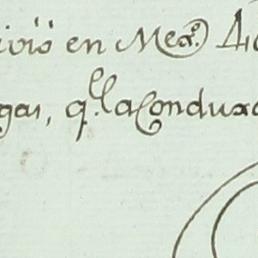 ivió en Mexº. 4
gas, q.e la Condux